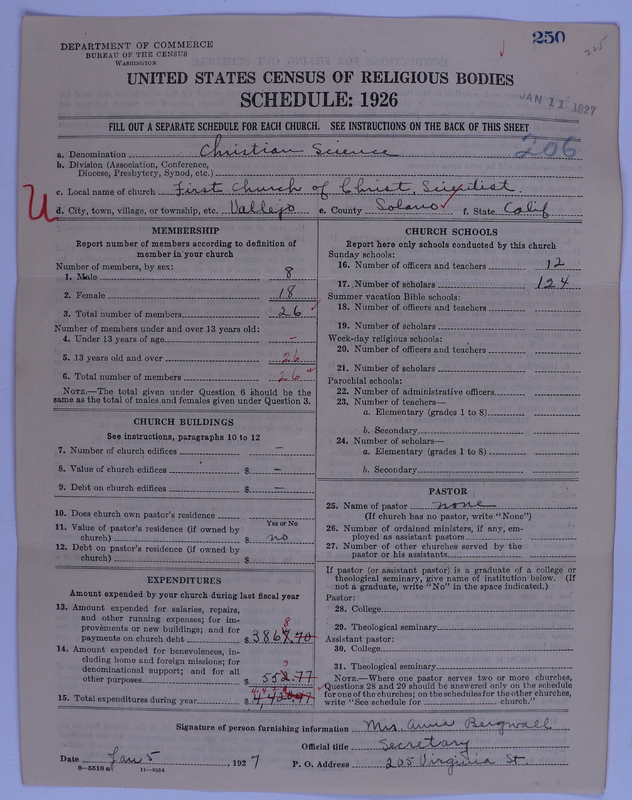 250
205
DEPARTMENT OF COMMERCE
BUREAU OF THE CENSUS
WASHINGTON
UNITED STATES CENSUS OF RELIGIOUS BODIES
SCHEDULE: 1926
JAN 11 1927
FILL OUT A SEPARATE SCHEDULE FOR EACH CHURCH. SEE INSTRUCTIONS ON THE BACK OF THIS SHEET
206
a. Denomination Christian Science
b. Division (Association, Conference,
Diocese, Presbytery, Synod, etc.)
c. Local name of church First Church of Christ, Scientist.
U
d. City, town, village, or township, etc. Vallejo e. County Solano f. State Calif
MEMBERSHIP
Report number of members according to definition of
member in your church
Number of members, by sex:
1. Male 8
2. Female 18
3. Total number of members 26
Number of members under and over 13 years old:
4. Under 13 years of age –
5. 13 years old and over 26
6. Total number of members 26
NOTE.—The total given under Question 6 should be the
same as the total of males and females given under Question 3.
CHURCH BUILDINGS
See instructions, paragraphs 10 to 12
7. Number of church edifices –
8. Value of church edifices $ –
9. Debt on church edifices $ –
10. Does church own pastor's residence
Yes or No
11. Value of pastor's residence (if owned by
church) $ no
12. Debt on pastor's residence (if owned by
church) $
EXPENDITURES
Amount expended by your church during last fiscal year
13. Amount expended for salaries, repairs,
and other running expenses; for im-
provements or new buildings; and for
payments on church debt $ 3867.70
8
14. Amount expended for benevolences, in-
cluding home and foreign missions; for
denominational support; and for all
other purposes $ 552.77
3
15. Total expenditures during year $
CHURCH SCHOOLS
Report here only schools conducted by this church
Sunday schools:
16. Number of officers and teachers 12
17. Number of scholars 124
Summer vacation Bible schools:
18. Number of officers and teachers
19. Number of scholars
Week-day religious schools:
20. Number of officers and teachers
21. Number of scholars
Parochial schools:
22. Number of administrative officers
23. Number of teachers—
a. Elementary (grades 1 to 8)
b. Secondary
24. Number of scholars—
a. Elementary (grades 1 to 8)
b. Secondary
PASTOR
25. Name of pastor none
(If church has no pastor, write "None")
26. Number of ordained ministers, if any, em-
ployed as assistant pastors
27. Number of other churches served by the
pastor or his assistants
If pastor (or assistant pastor) is a graduate of a college or
theological seminary, give name of institution below. (If
not a graduate, write "No" in the space indicated.)
Pastor:
28. College
29. Theological seminary
Assistant pastor:
30. College
31. Theological seminary
NOTE.—Where one pastor serves two or more churches,
Questions 28 and 29 should be answered only on the schedule
for one of the churches; on the schedules for the other churches,
write "See schedule for church."
Signature of person furnishing information Mrs. Anna Bergwall
Official title Secretary
Date Jan 5, 1927 P. O. Address 205 Virginia St.
8—5518 a 11—9554